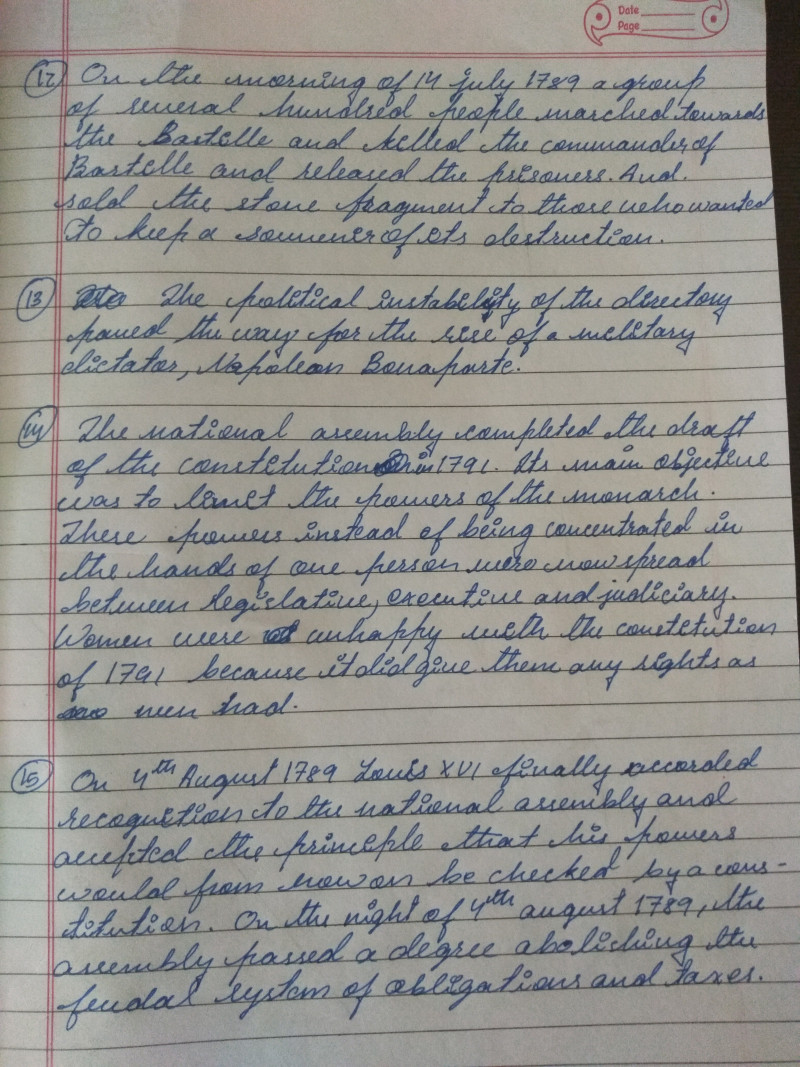 Date
Page
12 On the morning of 14 july 1789 a group
of several hundred people marched towards
the Bastille and killed the commander of
Bastille and released the prisoners. And.
sold the stone fragment to those who wanted
to keep a souvenir of its destruction.
13 The political instability of the directory
paved the way for the rise of a military
dictator, Napoleon Bonaparte.
14 The national assembly completed the draft
of the constitution in 1791. Its main objective
was to limit the powers of the monarch.
These powers instead of being concentrated in
the hands of one person were now spread
between legislative, executive and judiciary.
Women were unhappy with the constitution
of 1791 because it did give them any rights as
men had.
15 On 4th August 1789 Louis XVI finally accorded
recognition to the national assembly and
accepted the principle that his powers
would from now on be checked by a cons-
titution. On the night of 4th august 1789, the
assembly passed a degree abolishing the
feudal system of obligations and taxes.